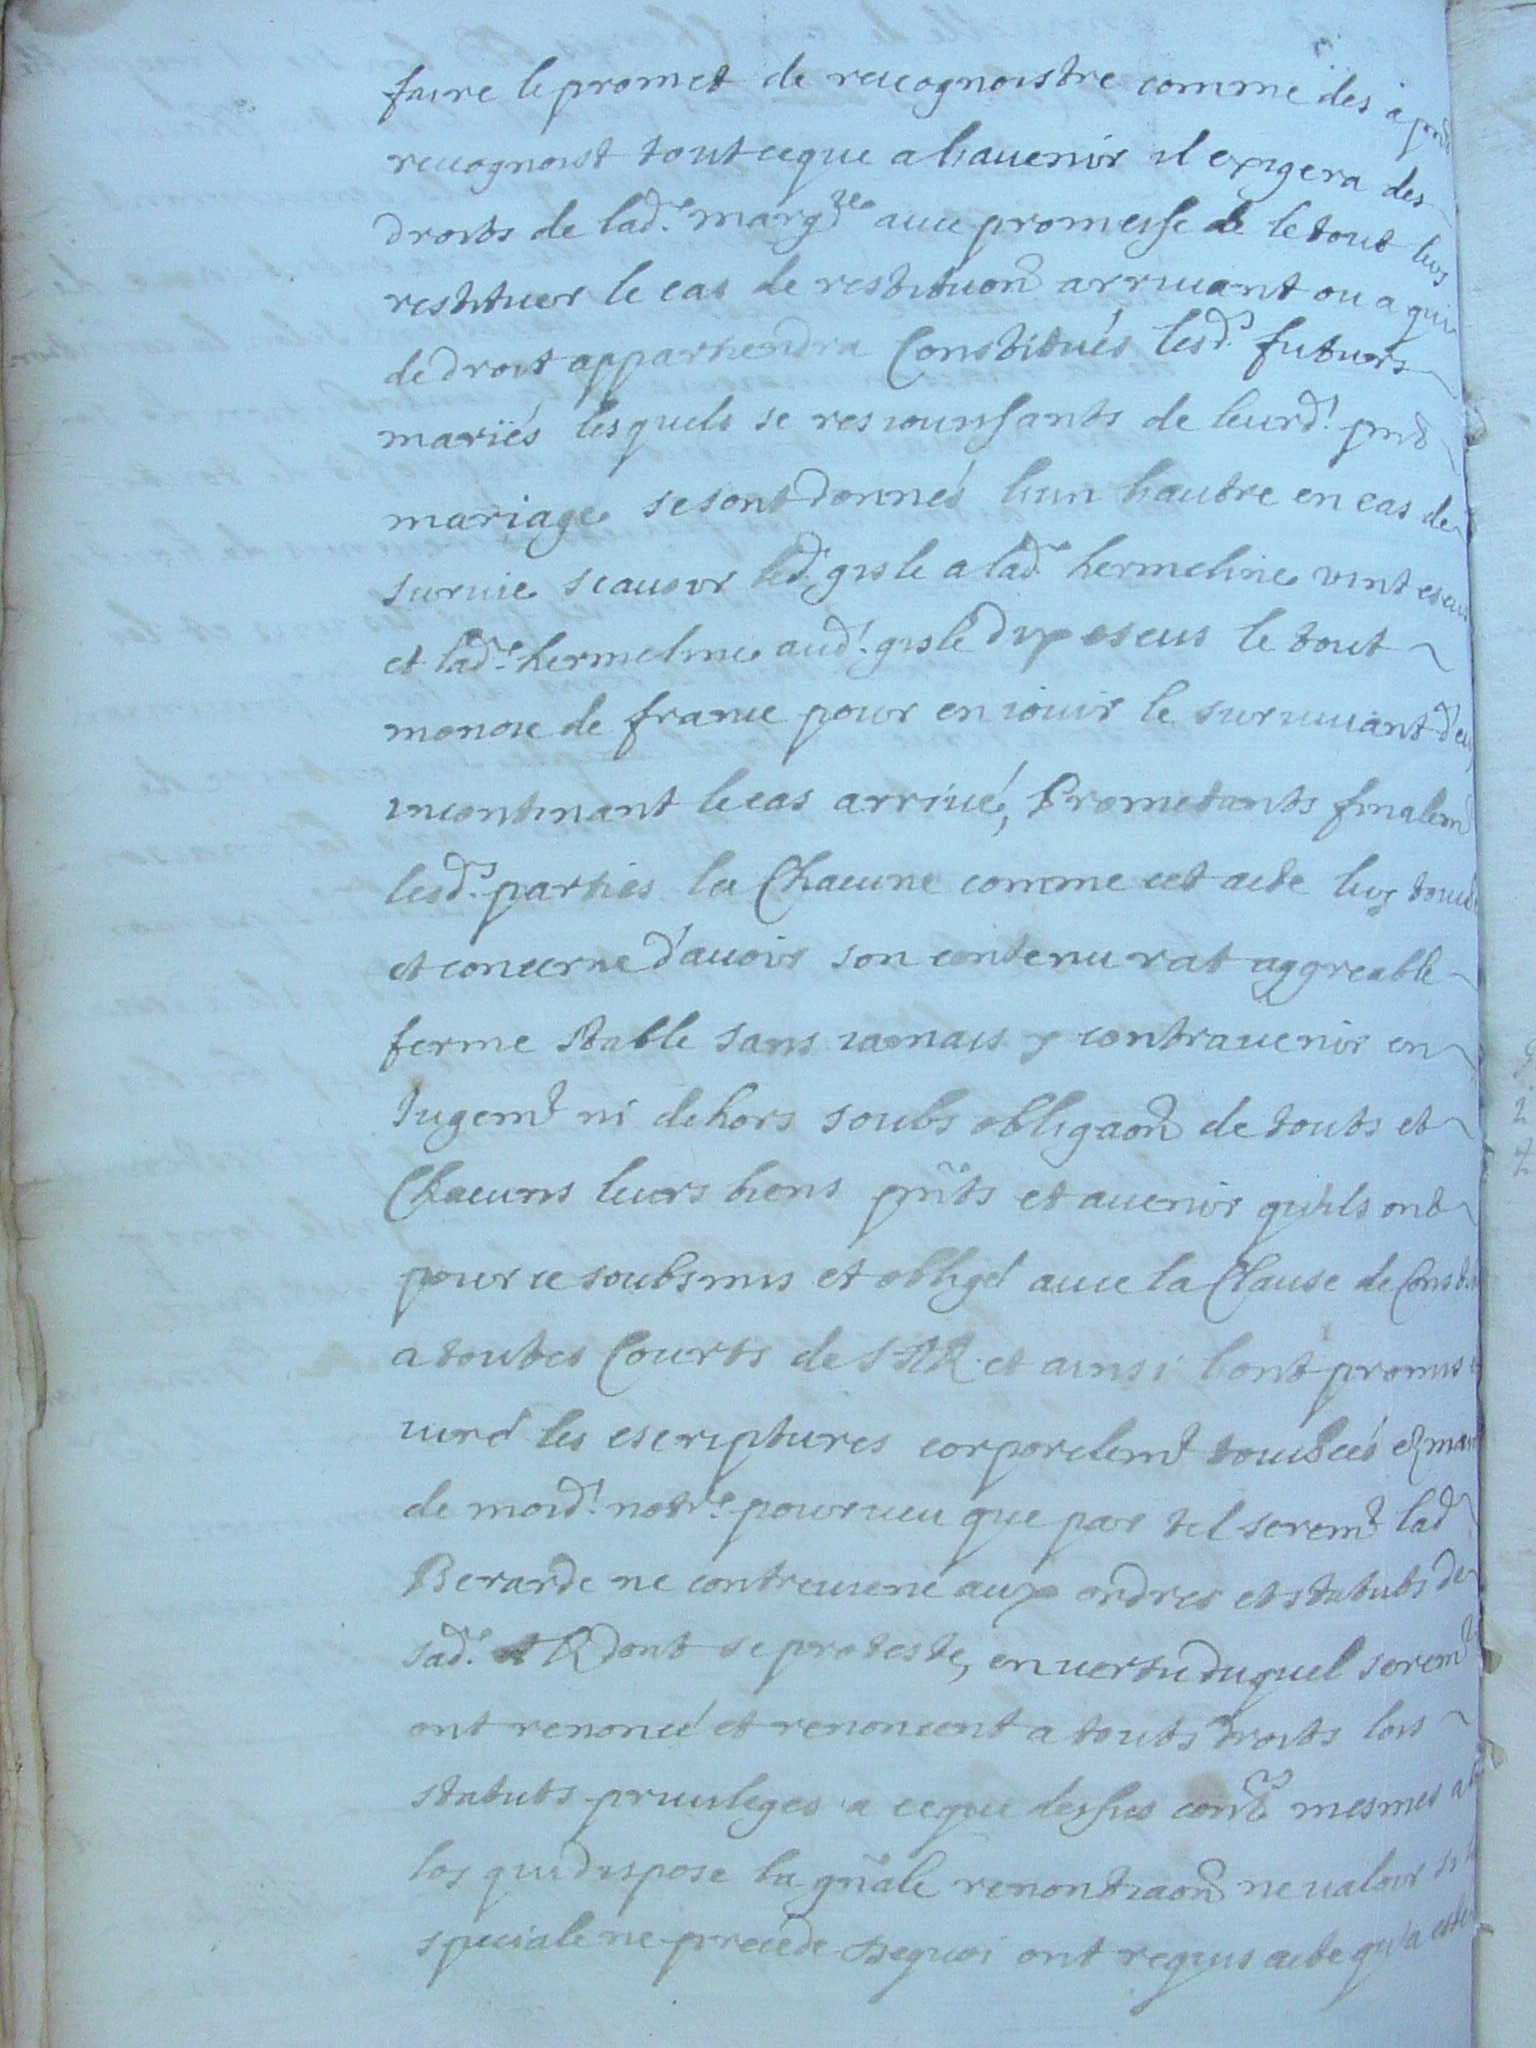 faire le promet de recognoistre comme des a pnt
recognoist tout ceque a ladvenir il exigera des
droits de lad.e marg.te avec promesse de le tout leur
restituer le cas de restituon arrivant ou a qui
de droit appartiendra Constitués lesd.s futurs
mariés lesquels se resiouissants de leurd.t pnt
mariage se sont donnés lun lautre en cas de
survie scavoir led.t gisle a lad.e hermeline vint escus
et lad.e hermeline aud.t gisle dix escus le tout
monoie de france pour en iouir le survivant d'eux
incontinant le cas arrivé, Prometants finalemt
lesd.s parties la Chacune comme cet acte leur touche
et concerne d'avoir son contenu rat aggreable
ferme stable sans iamais y contravenir en
Iugemt ni dehors soubs obligaon de touts et
Chacuns leurs biens pnts et avenir quils ont
pour ce soubsmis et obligé avec la Clause de Const
a toutes Courts de SAR et ainsi lont promis
iuré les escriptures corporelemt touchées ez mains
de moid.t notre pourveu que par tel seremt lad
Berarde ne contreviene aux ordres et statuts de
sad. AR dont se proteste, en vertu duquel seremt
ont renoncé et renoncent a touts droits lois
statuts privileges a ceque dessus cont mesmes a la
loy qui dispose la gnale renontiaon ne valoir si la
speciale ne precede Dequoi ont requis acte qu'a esté